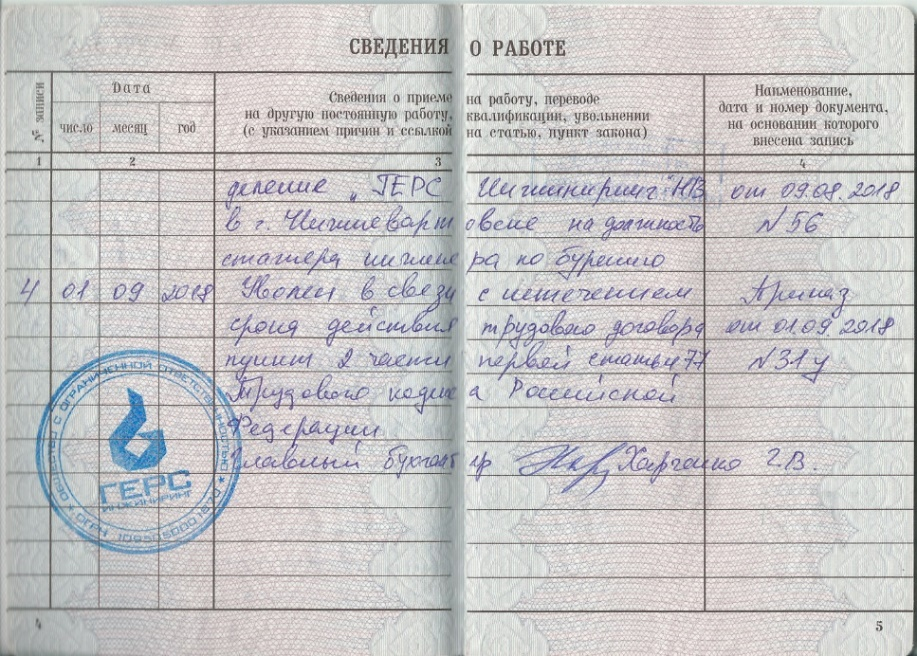 СВЕДЕНИЯ О РАБОТЕ
№ записи
Дата
число месяц год
Сведения о приеме на работу, переводе
на другую постоянную работу, квалификации, увольнении
(с указанием причин и ссылкой на статью, пункт закона)
Наименование,
дата и номер документа,
на основании которого
внесена запись
1 2 3 4
деление „ГЕРС Инжиниринг" НВ от 09.08.2018
в г. Нижневартовске на должность N 56
стажера инженера по бурению
4 01 09 2018 Уволен в связи с истечением Приказ
срока действия трудового договора от 01.09.2018
пункт 2 части первой статьи 77 N 31у
Трудового кодекса Российской
Федерации
Главный бухгалтер Харченко Г.В.
ОБЩЕСТВО С ОГРАНИЧЕННОЙ ОТВЕТСТВЕННОСТЬЮ
ГЕРС
ИНЖИНИРИНГ
ОГРН
4
5